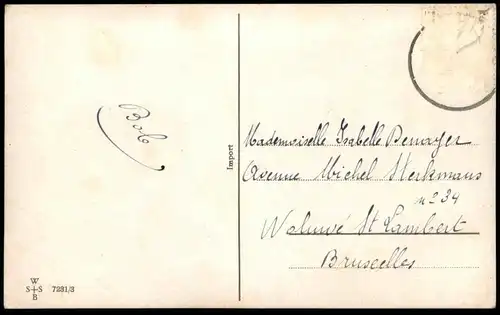 Bob
Import
Mademoiselle Isabelle Demayer
Avenue Michel Sterkmans
n° 34
Woluwé St Lambert
Bruxelles
W
S+S 7281/3
B